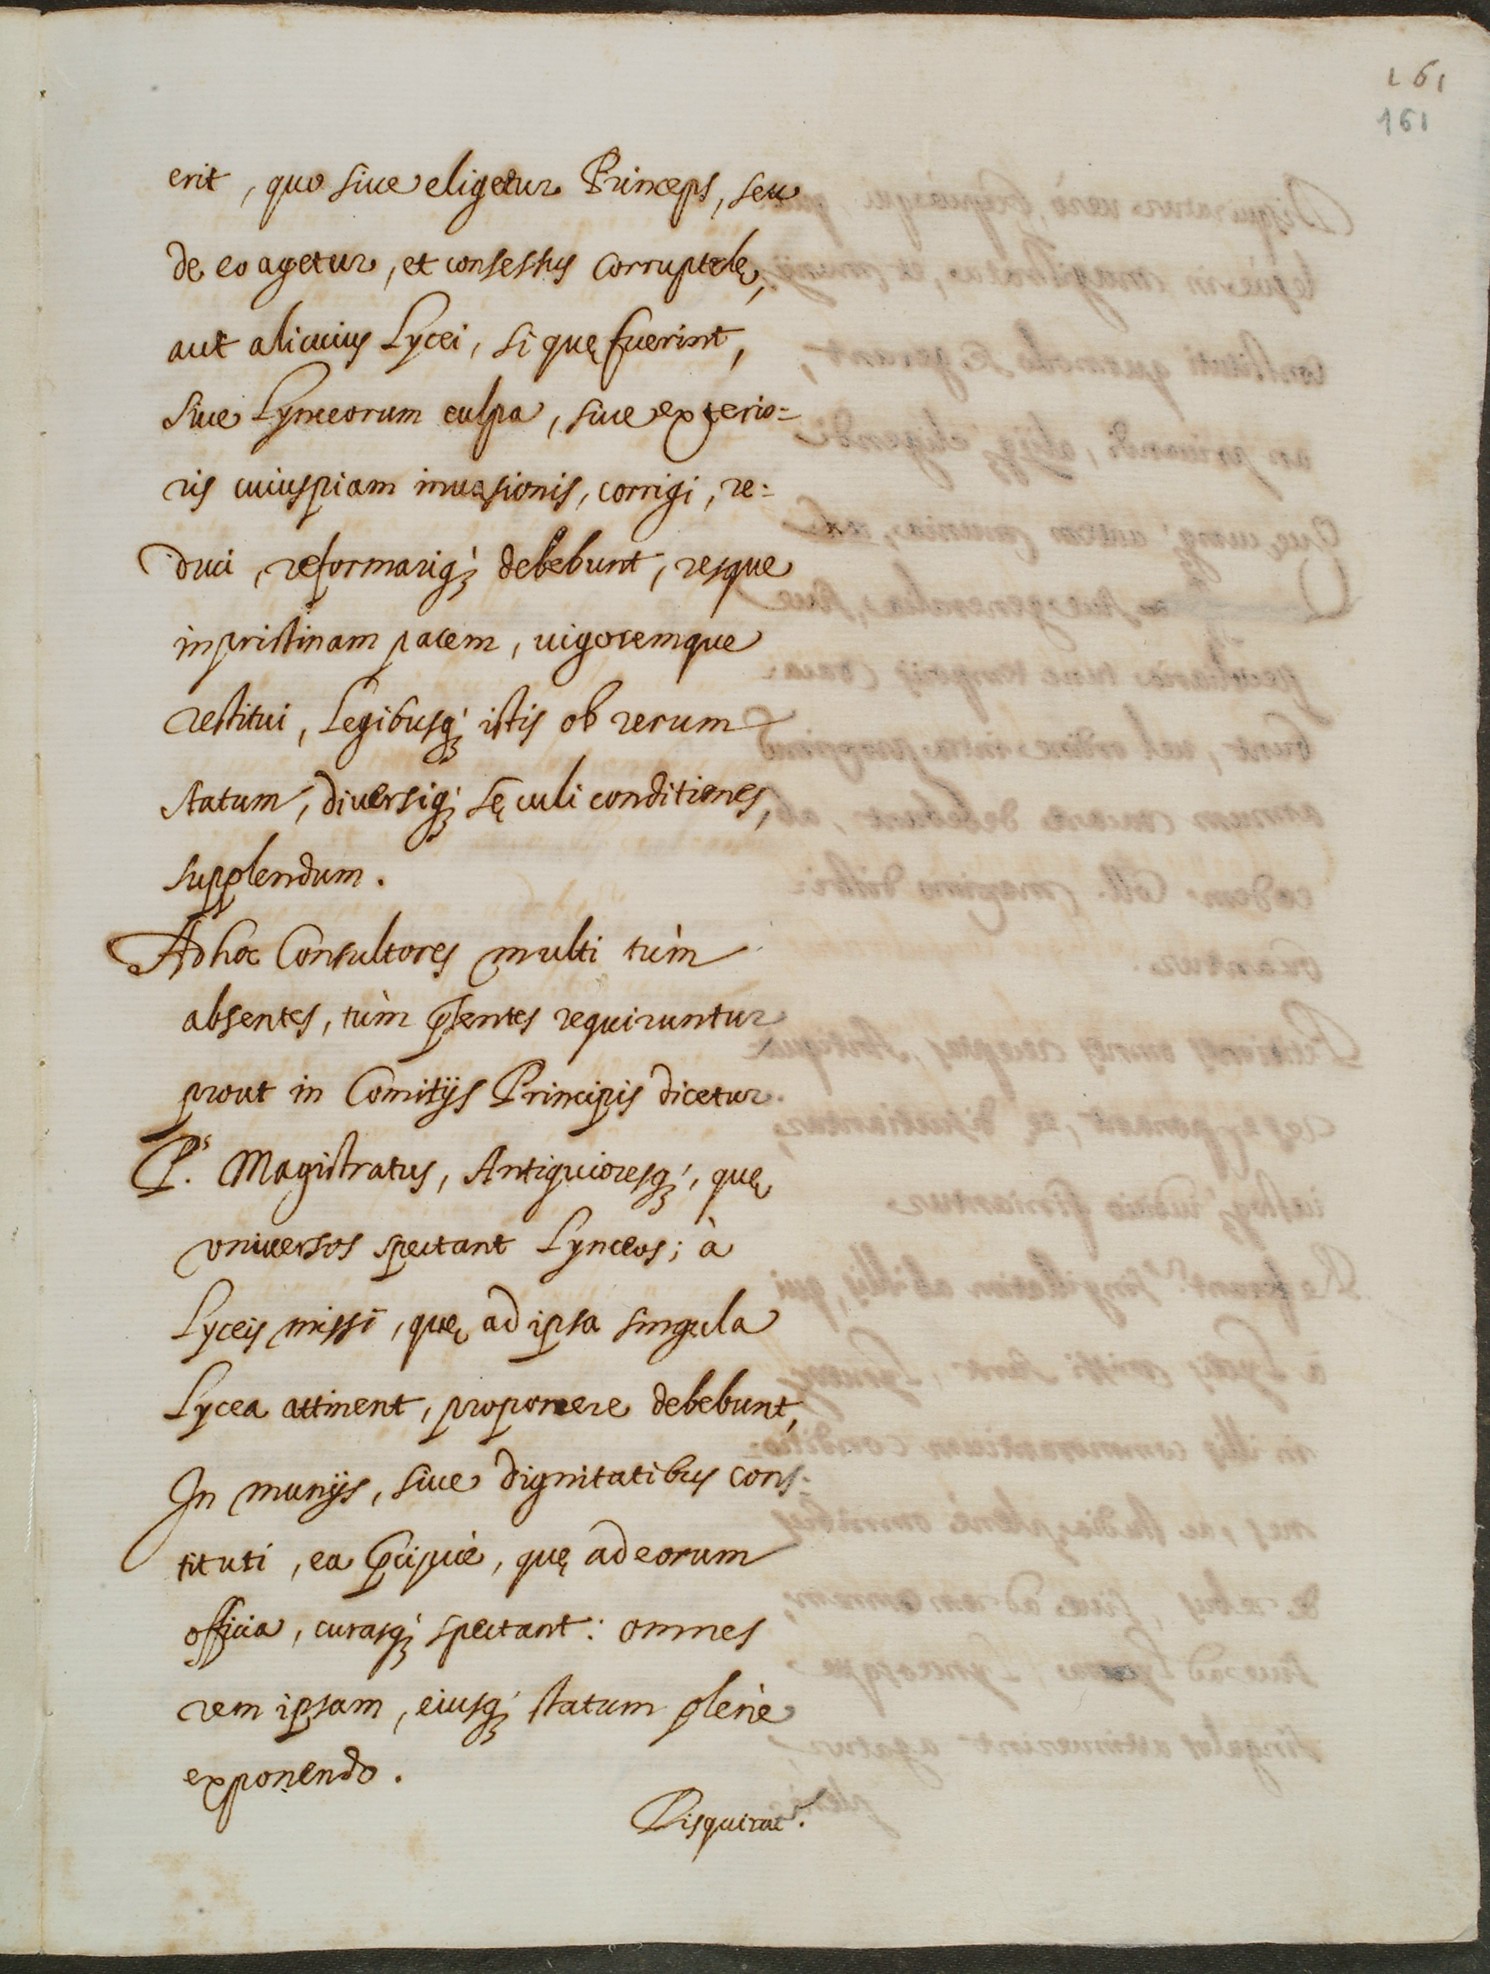 161
161
erit, quo siue eligetur Princeps, seu
de eo agetur, et consessus corruptelę,
aut alicuius Lycei, si quę fuerint,
siue Lynceorum culpa, siue exterio=
ris cuiuspiam inuasionis, corrigi, re=
duci, reformariq; debebunt, resque
in pristinam pacem, uigoremque
restitui, Legibusq; istis ob rerum
statum, diuersiq; sęculi conditiones,
supplendum.
Ad hoc Consultores multi tùm
absentes, tùm pr̃sentes requiruntur
prout in Comitijs Principis dicetur.
P.s Magistratus, Antiquioresq;, quę
vniuersos spectant Lynceos; à
Lyceis missi, quę ad ipsa singula
Lycea attinent, proponere debebunt,
In munijs, siue dignitatibus cons=
tituti, ea pr̃cipuè, quę ad eorum
officia, curasq; spectant: omnes
rem ipsam, eiusq; statum plenè
exponendo.
Disquirat.r